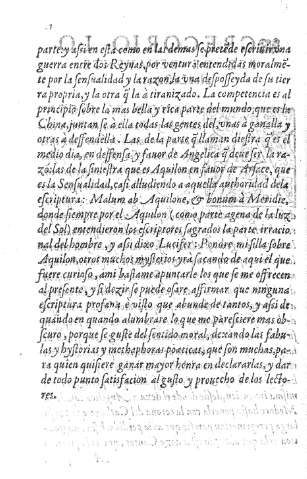 parte y assi en esta como en las demas se pretēde escriuir una
guerra entre dos Reynas, por ventura entendidas moralmē-
te por la sensualidad y la razon, la vna desposseyda de su tier
ra propria, y la otra q̄ la à tiranizado. La competencia es al
principio sobre la mas bella y rica parte del mundo, que es la
China, juntanse à ella todas las gentes del vnas à ganalla y
otras à deffendella. Las de la parte q̄ llaman diestra q̄ es el
medio dia, en deffensa y fauor de Angelica q̄ deue ser la ra-
zō, las de la siniestra que es Aquilon en fauor de Arsace, que
es la Sensualidad, casi alludiendo a aquella authoridad de la
escriptura: Malum ab Aquilone, & bonum à Meridie,
donde siempre por el Aquilon (como parte agena de la luz
del Sol) entendieron los escriptores sagrados la parte irracio
nal del hombre, y assi dixo Lucifer: Pondre mi silla sobre
Aquilon, otros muchos mysterios yrà sacando de aqui el que
fuere curioso, a mi bastame apuntarle los que se me offrecen
al presente, y si dezir se puede osare affirmar que ninguna
escriptura profana è visto que abunde de tantos, y assi de
quando en quando alumbrare lo que me paresciere mas ob-
scuro, porque se guste del sentido moral, dexando las fabu-
las y hystorias y methaphoras poeticas, que son muchas, pa-
ra quien quisiere ganar mayor honra en declararlas, y dar
de todo punto satisfacion al gusto, y prouecho de los lecto-
res.